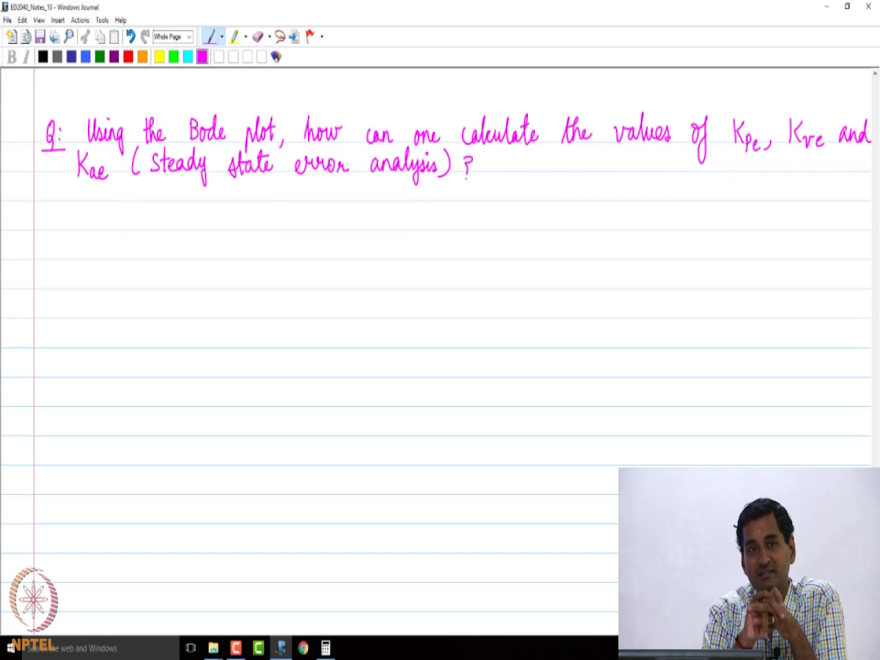 ED2040_Notes_10 - Windows Journal
File Edit View Insert Actions Tools Help
Whole Page
B I
Q: Using the Bode plot, how can one calculate the values of Kpe, Kve and
Kae (steady state error analysis)?
NPTEL
the web and Windows